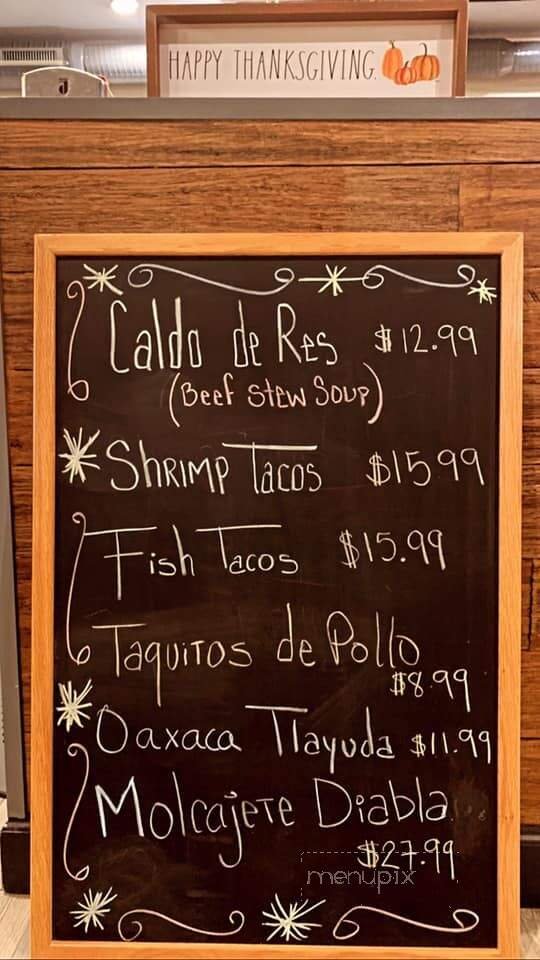 HAPPY THANKSGIVING.
J
Caldo de Res $12.99
(Beef Stew Soup)
Shrimp Tacos $15.99
Fish Tacos $15.99
Taquitos de Pollo
$8.99
Oaxaca Tlayuda $11.99
Molcajete Diabla
$27.99
menupix